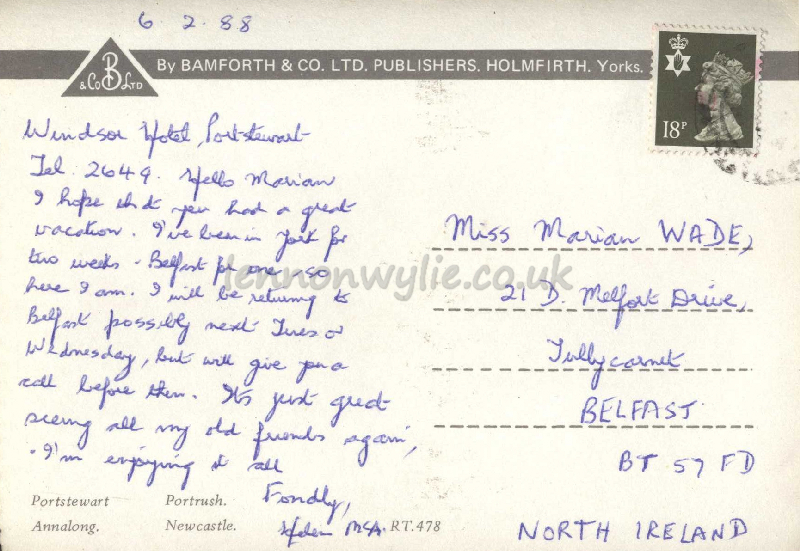 6 2 88
B & Co LTD By BAMFORTH & CO. LTD. PUBLISHERS. HOLMFIRTH. Yorks.
18P
Windsor Hotel, Portstewart
Tel. 2649. Hello Marian
I hope that you had a great
vacation. I've been in Port for
two weeks - Belfast for one - so
here I am. I will be returning to
Belfast possibly next Tues or
Wednesday, but will give you a
call before then. It's just great
seeing all my old friends again,
. I'm enjoying it all
Fondly,
Helen
Miss Marian WADE,
21 D. Melfort Drive,
Tullycarnet
BELFAST
BT 57 FD
NORTH IRELAND
Portstewart Portrush.
Annalong. Newcastle. RT.478
lennonwylie.co.uk